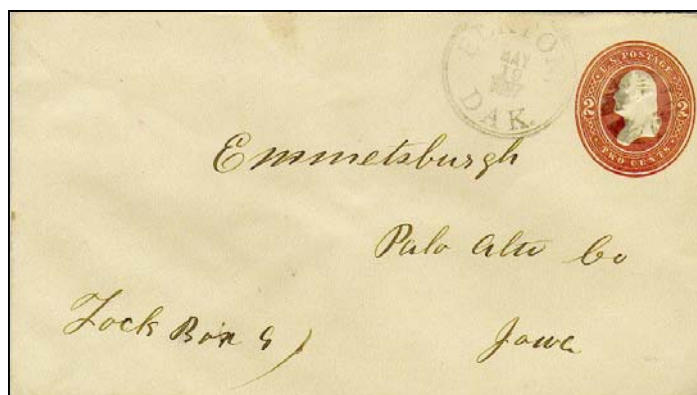 ELKTO
MAY
19
DAK.
U.S. POSTAGE
2 2
TWO CENTS
Emmetsburgh
Palo Alto Co
Lock Box 9
Iowa